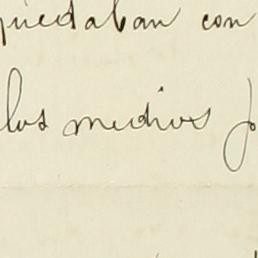 quedaban con
los medios